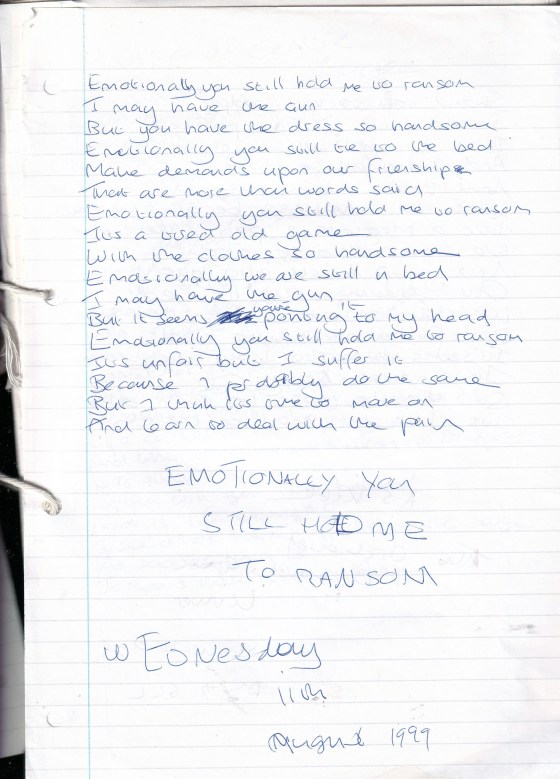 Emotionally you still hold me to ransom
I may have the gun
But you have the dress so handsome
Emotionally you still tie to the bed
Make demands upon our frienship
That are more than words said
Emotionally you still hold me to ransom
Its a tired old game
With the clothes so handsome
Emotionally we are still in bed
I may have the gun
But it seems you're pointing it to my head
Emotionally you still hold me to ransom
Its unfair but I suffer it
Because I probably do the same
But I think its time to move on
And learn to deal with the pain
EMOTIONALLY YOU
STILL HOLD ME
TO RANSOM
WEDNESDAY
11th
August 1999